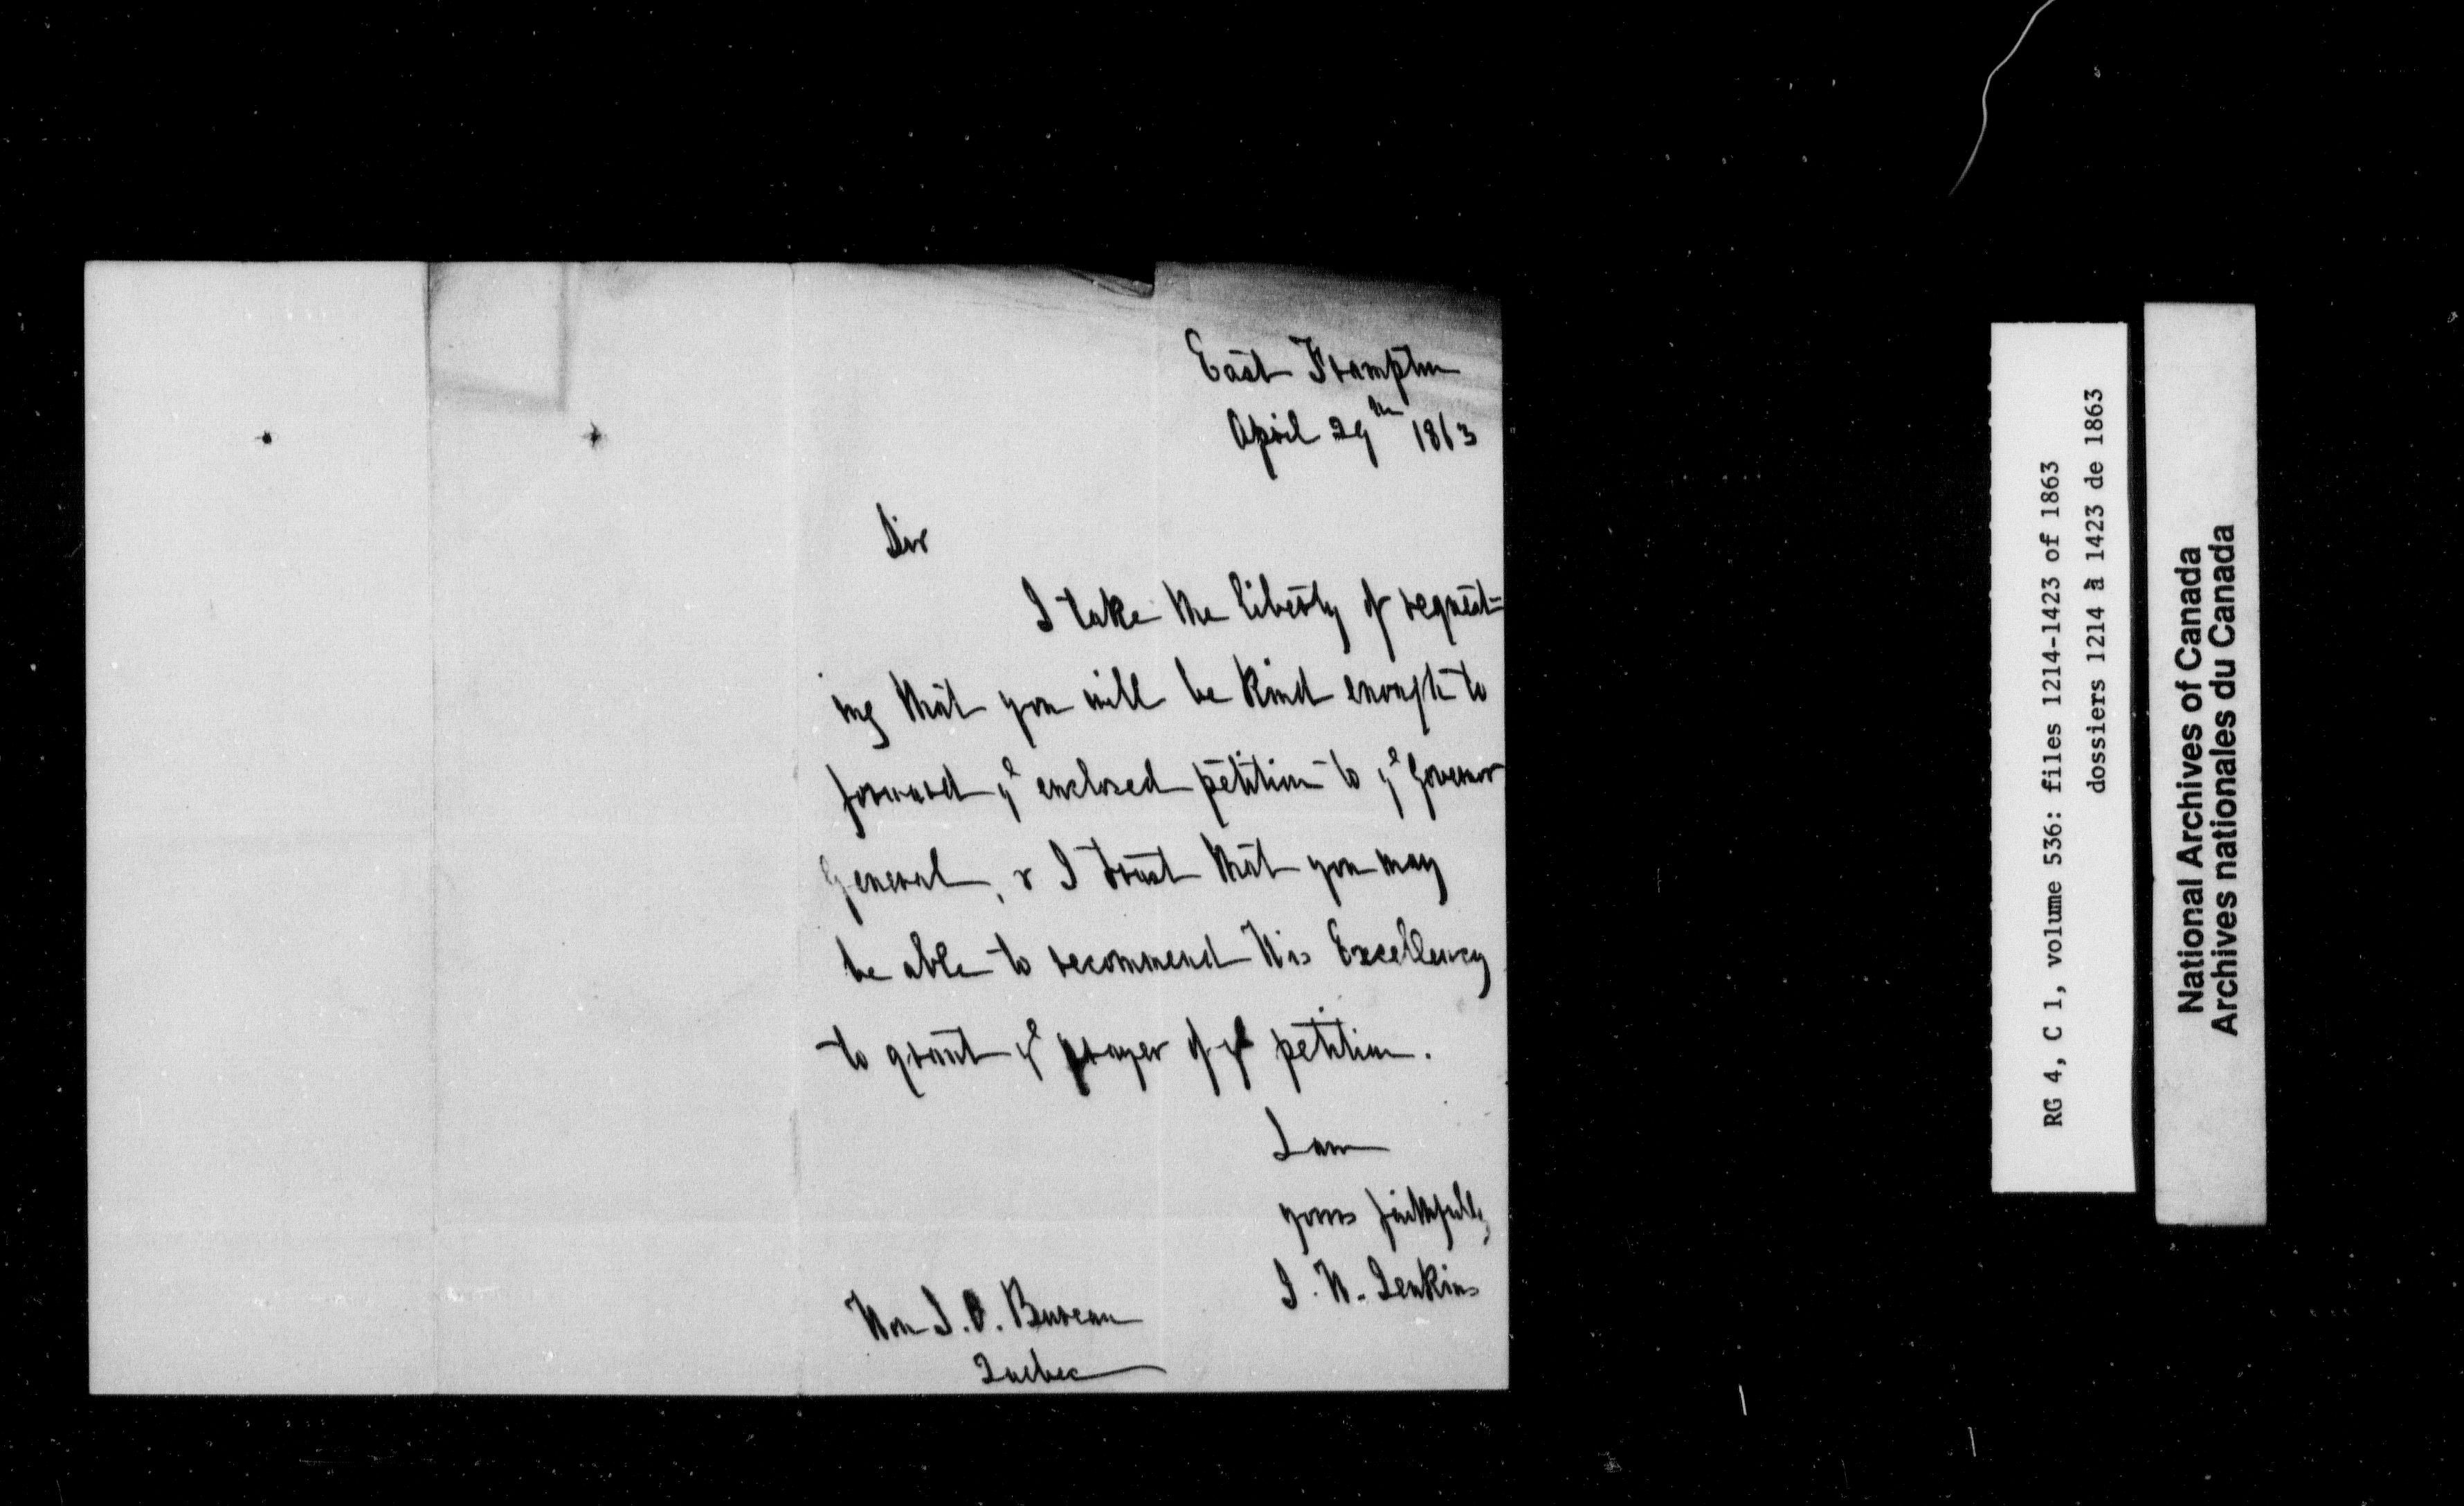 East Frampton
April 29th 1863
Sir
I take the liberty of request=
ing that you will be kind enough to
forward ye enclosed petition to ye Governor
General, & I trust that you may
be able to recommend His Excellency
to grant ye prayer of ye petition.
I am
yours faithfully
J. H. Jenkins
Hon J. O. Bureau
Quebec
RG 4, C 1, volume 536: files 1214-1423 of 1863
dossiers 1214 à 1423 de 1863
National Archives of Canada
Archives nationales du Canada